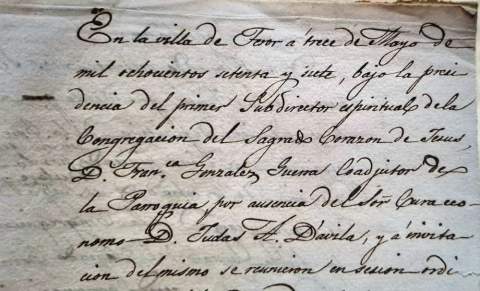 En la villa de Teror á trece de Mayo de
mil ochocientos setenta y siete, bajo la presi
dencia del primer Subdirector espiritual de la
Congregacion del Sagrado Corazon de Jesus,
D. Fran.ca Gonzalez Guerra Coadjutor de
la Parroquia, por ausencia del Sor. Cura eco-
nomo D. Judas A. Dávila, y á invita
cion del mismo se reunieron en sesion ordi